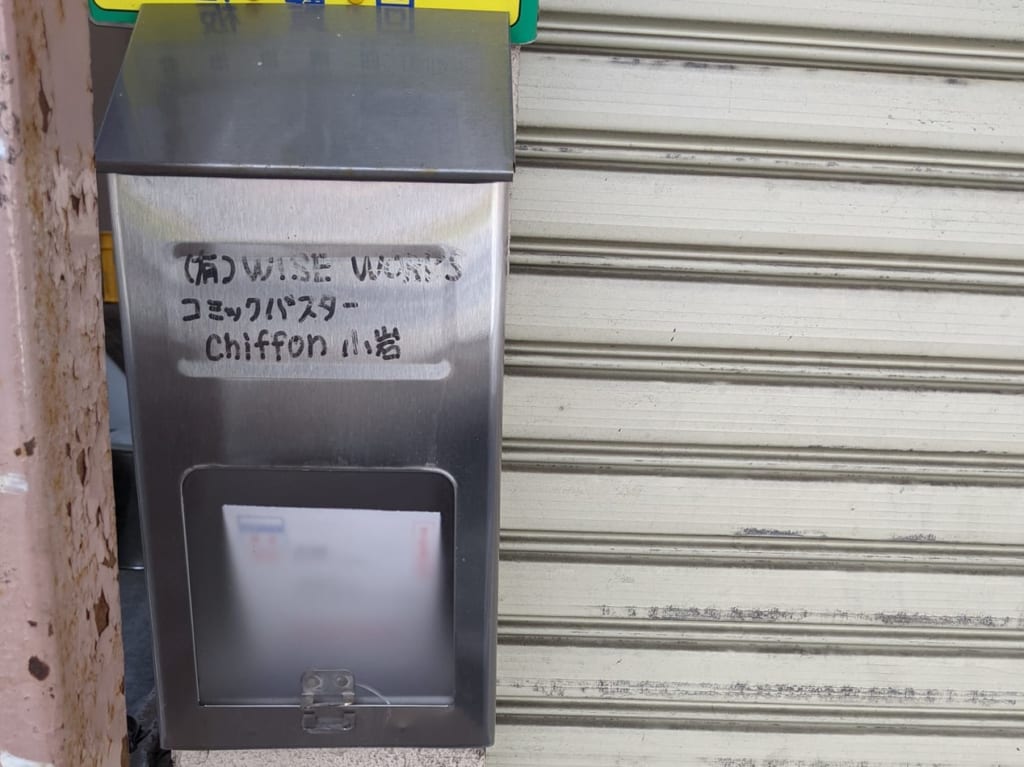 (有)WISE WORKS
コミックバスター
Chiffon 小岩